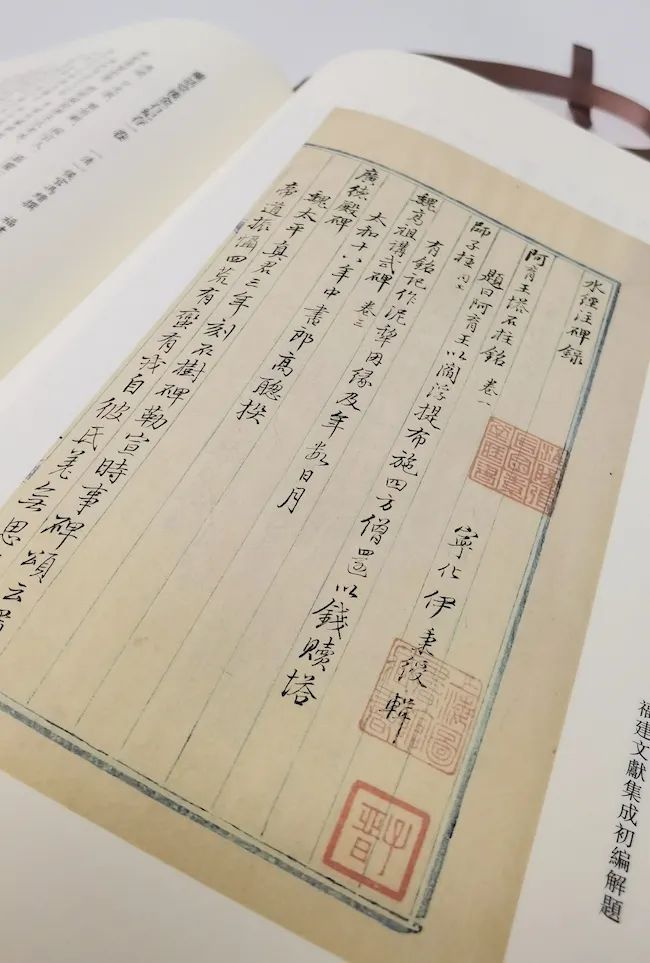 水經注碑錄
寧化伊秉綬輯
阿育王塔石柱銘 卷一
題曰阿育王以閻浮提布施四方僧還以錢贖塔
師子柱 同上
有銘記作泥犁因緣及年數日月
魏高祖講武碑 卷三
太和十八年中書郎高聰撰
廣德殿碑
魏太平真君三年刻石樹碑勒宣時事碑頌云
帝道振懾四荒有蠻有戎自彼氐羌無思
福建文獻集成初編解題